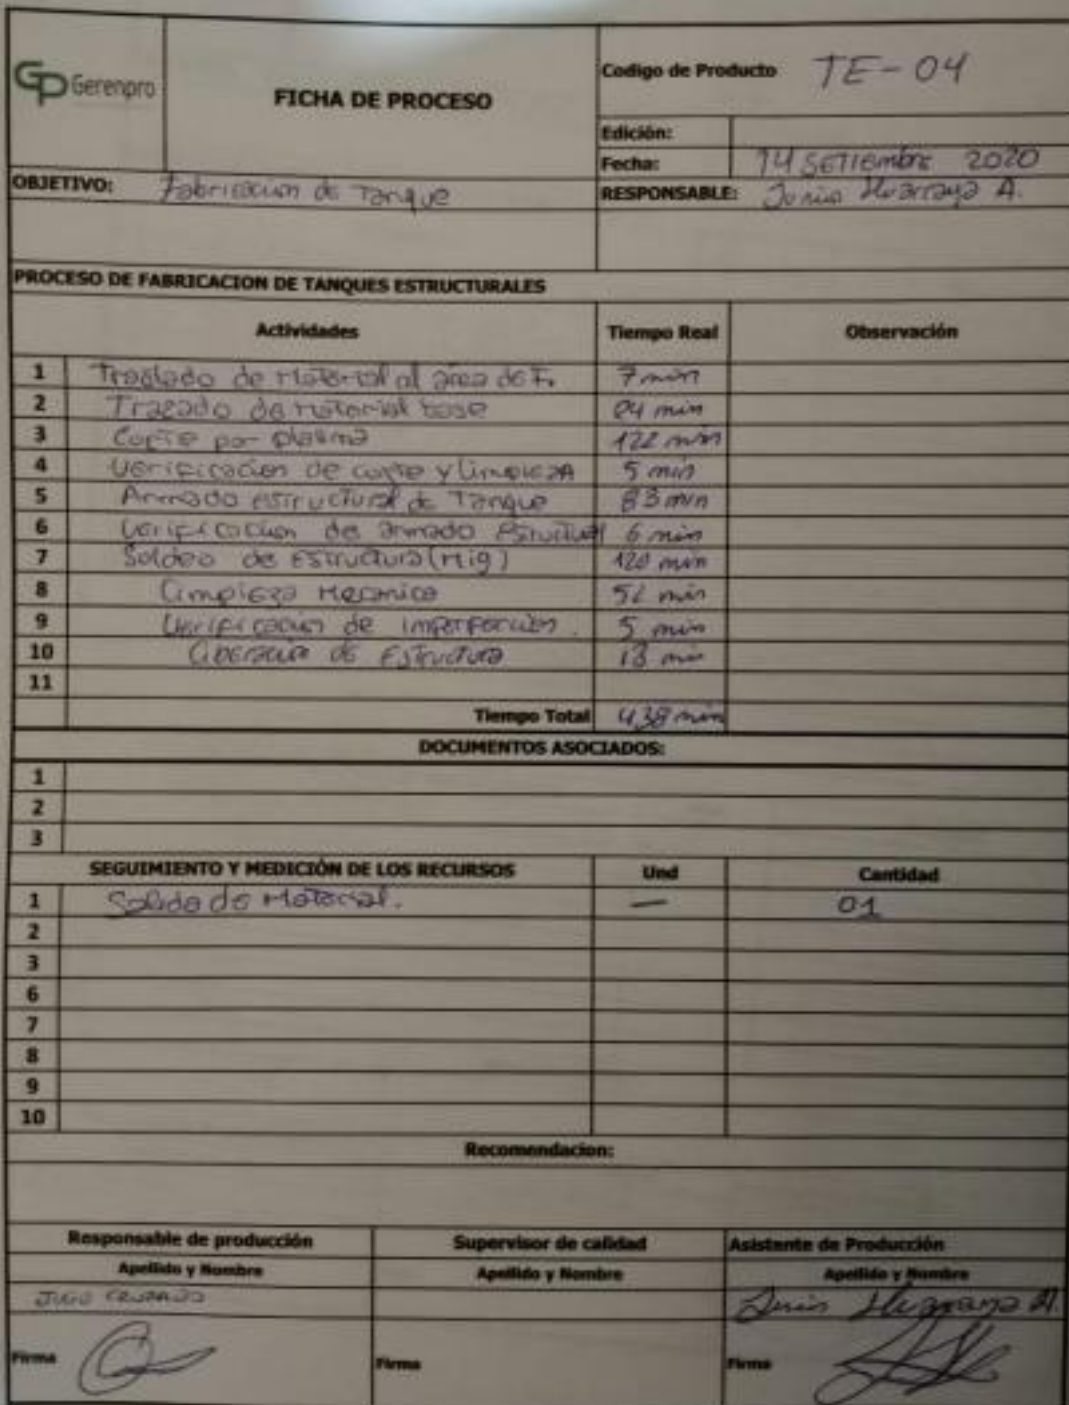 GP Gerenpro
FICHA DE PROCESO
Codigo de Producto TE-04
Edición:
Fecha: 14 SETIEmbre 2020
OBJETIVO: Fabricacion de Tanque
RESPONSABLE: A.
PROCESO DE FABRICACION DE TANQUES ESTRUCTURALES
Actividades Tiempo Real Observación
1 Traslado de Material al area de F. 7 min
2 Trazado de material base 24 min
3 Corte por plasma 122 min
4 Verificacion de corte y limpieza 5 min
5 Armado estructural de Tanque 83 min
6 Verificacion de armado Estructural 6 min
7 Soldeo de Estructura (Mig) 120 min
8 Limpieza Mecanica 52 min
9 Verificacion de imperfeccion. 5 min
10 Liberacion de Estructura min
11
Tiempo Total 438 min
DOCUMENTOS ASOCIADOS:
1
2
3
SEGUIMIENTO Y MEDICIÓN DE LOS RECURSOS Und Cantidad
1 Salida de Material. — 01
2
3
6
7
8
9
10
Recomendacion:
Responsable de producción Supervisor de calidad Asistente de Producción
Apellido y Nombre Apellido y Nombre Apellido y Nombre
A.
Firma Firma Firma